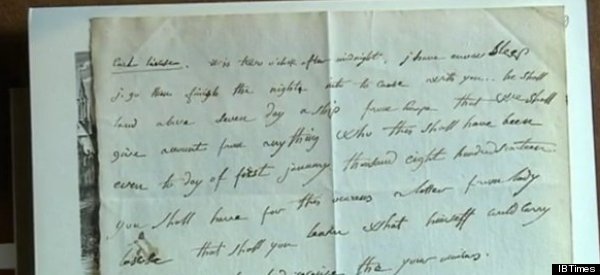 Count lascases. It is two o'clock after midnight, j have enow sleep
j go then finish the night into to cause with you... he shall
land above seven day a ship from Europe that we shall
give account from anything who this shall have been
even to day of first january thousand eight hundred sixteen.
you shall have for this ocurens a letter from lady
lascases that shall you learn what himself could carry
the your
IBTimes